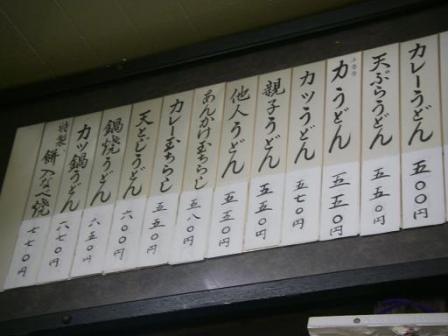 カレーうどん 五〇〇円
天ぷらうどん 五五〇円
力うどん 五五〇円
カツうどん 五七〇円
親子うどん 五五〇円
他人うどん 五五〇円
あんかけむちらじ 五八〇円
カレーむちらじ 五五〇円
天とじうどん 六〇〇円
鍋焼うどん 六五〇円
カツ鍋うどん 六七〇円
特製 餅入なべ焼 七七〇円